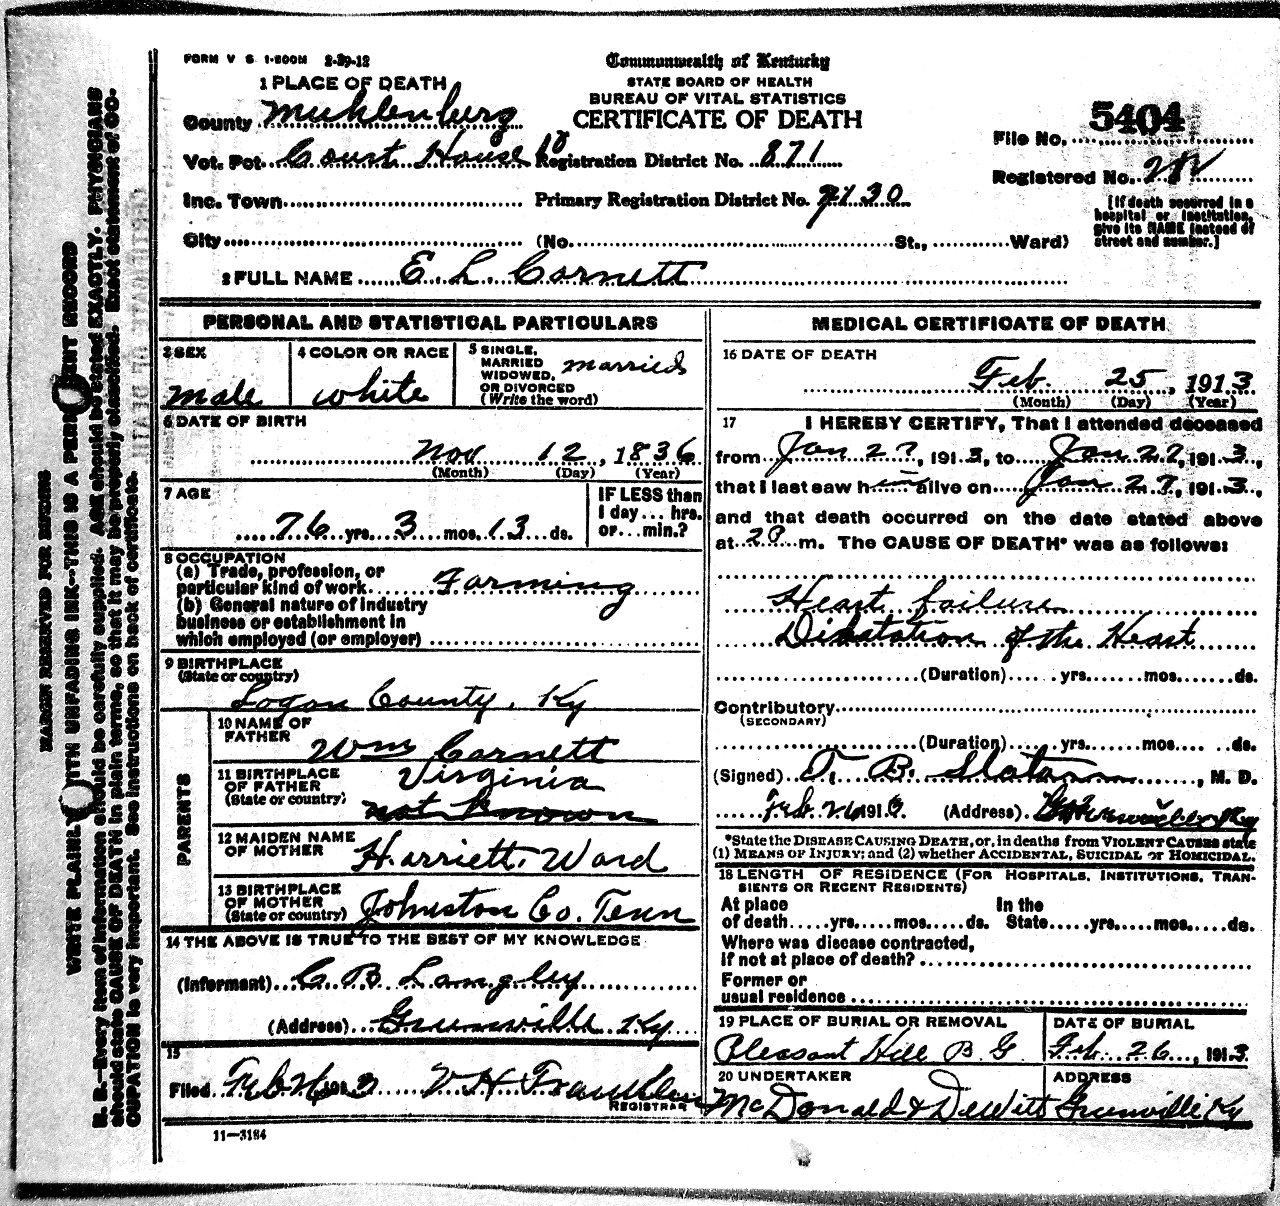 FORM V S 1-500M 2-29-12
Commonwealth of Kentucky
STATE BOARD OF HEALTH
BUREAU OF VITAL STATISTICS
CERTIFICATE OF DEATH
1 PLACE OF DEATH
County Muhlenburg
Vot. Pct. Court House 10
Inc. Town
City (No. St., Ward)
Registration District No. 871
Primary Registration District No. 7130
File No. 5404
Registered No.
[If death occurred in a
hospital or institution,
give its NAME instead of
street and number.]
2 FULL NAME E. L. Cornett
PERSONAL AND STATISTICAL PARTICULARS
3 SEX
male
4 COLOR OR RACE
white
5 SINGLE,
MARRIED
WIDOWED,
OR DIVORCED
(Write the word)
married
6 DATE OF BIRTH
Nov 12, 1836
(Month) (Day) (Year)
7 AGE
76 yrs. 3 mos. 13 ds.
IF LESS than
1 day... hrs.
or...min.?
8 OCCUPATION
(a) Trade, profession, or
particular kind of work Farming
(b) General nature of industry
business or establishment in
which employed (or employer)
9 BIRTHPLACE
(State or country)
Logan County, Ky
PARENTS
10 NAME OF
FATHER
Wm Cornett
11 BIRTHPLACE
OF FATHER
(State or country)
Virginia
not known
12 MAIDEN NAME
OF MOTHER
Harriett Ward
13 BIRTHPLACE
OF MOTHER
(State or country)
Johnston Co. Tenn
14 THE ABOVE IS TRUE TO THE BEST OF MY KNOWLEDGE
(Informant) C B Langley
(Address) Greenville Ky
15
Filed Feb 26 1913 V H Franklin
REGISTRAR
11-3184
MEDICAL CERTIFICATE OF DEATH
16 DATE OF DEATH
Feb 25, 1913
(Month) (Day) (Year)
17 I HEREBY CERTIFY, That I attended deceased
from Jan 27, 1913, to Jan 27, 1913,
that I last saw him alive on Jan 27, 1913,
and that death occurred on the date stated above
at 2 P m. The CAUSE OF DEATH* was as follows:
Heart failure
Dilatation of the Heart
(Duration) yrs. mos. ds.
Contributory
(SECONDARY)
(Duration) yrs. mos. ds.
(Signed) T. B. Slaton, M. D.
Feb 26 1913 (Address) Greenville Ky
*State the DISEASE CAUSING DEATH, or, in deaths from VIOLENT CAUSES state
(1) MEANS OF INJURY; and (2) whether ACCIDENTAL, SUICIDAL or HOMICIDAL.
18 LENGTH OF RESIDENCE (FOR HOSPITALS, INSTITUTIONS, TRAN-
SIENTS OR RECENT RESIDENTS)
At place In the
of death yrs. mos. ds. State yrs. mos. ds.
Where was disease contracted,
if not at place of death?
Former or
usual residence
19 PLACE OF BURIAL OR REMOVAL
Pleasant Hill B G
DATE OF BURIAL
Feb 26, 1913
20 UNDERTAKER
McDonald & DeWitt
ADDRESS
Greenville Ky
MARGIN RESERVED FOR BINDING
WRITE PLAINLY WITH UNFADING INK--THIS IS A PERMANENT RECORD
N. B.--Every item of information should be carefully supplied. AGE should be stated EXACTLY. PHYSICIANS
should state CAUSE OF DEATH in plain terms, so that it may be properly classified. Exact statement of OC-
CUPATION is very important. See instructions on back of certificate.